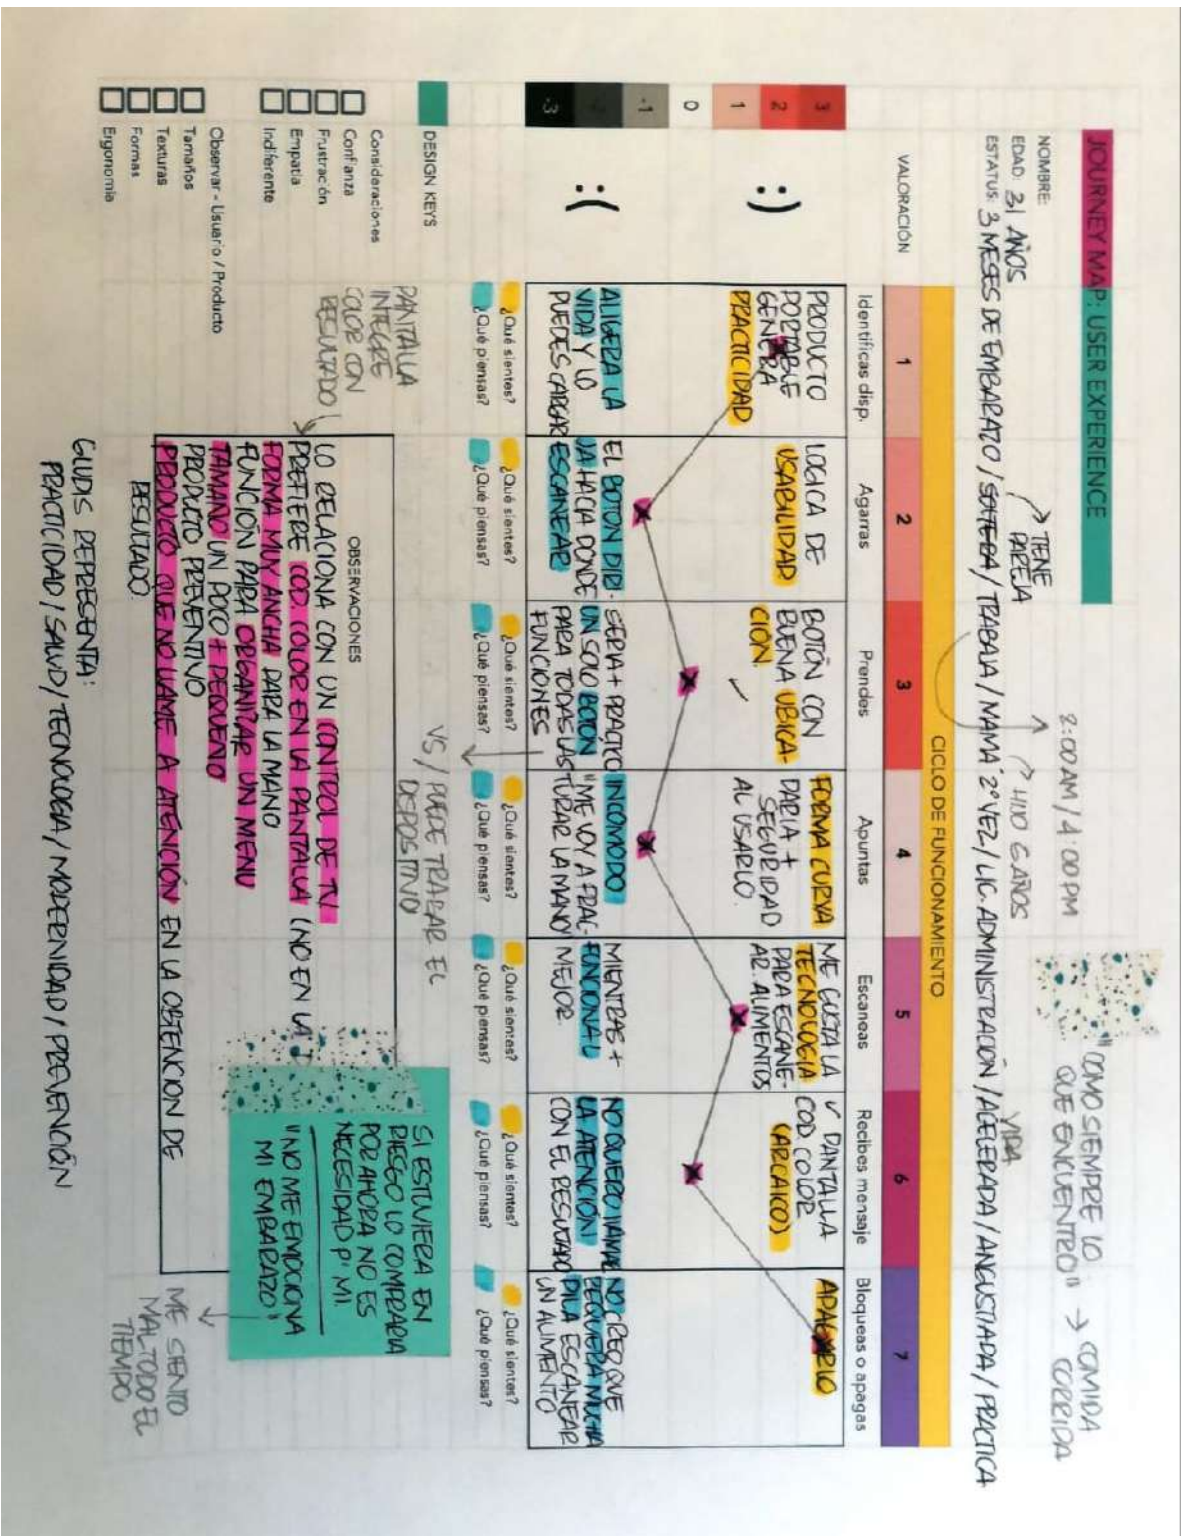 JOURNEY MAP: USER EXPERIENCE
NOMBRE:
EDAD: 31 AÑOS
ESTATUS: 3 MESES DE EMBARAZO / SOLTERA / TRABAJA / MAMÁ 2º VEZ / LIC. ADMINISTRACIÓN / ACELERADA / ANGUSTIADA / PRACTICA
→ TIENE
PAREJA
2:00 AM / 4:00 PM
HIJO 6 AÑOS
"COMO SIEMPRE LO
QUE ENCUENTRO" → COMIDA
CORRIDA
VIDA
CICLO DE FUNCIONAMIENTO
VALORACIÓN
1
2
3
4
5
6
7
Identificas disp.
Agarras
Prendes
Apuntas
Escaneas
Recibes mensaje
Bloqueas o apagas
3
2
1
0
-1
-2
-3
:)
:(
PRODUCTO
PORTABLE
GENERA
PRACTICIDAD
LOGICA DE
USABILIDAD.
BOTÓN CON
BUENA UBICA-
CIÓN.
FORMA CURVA
DARIA +
SEGURIDAD
AL USARLO.
ME GUSTA LA
TECNOLOGIA
PARA ESCANE-
AR ALIMENTOS
✓ PANTALLA
COD. COLOR
(ARCAICO)
APAGARLO
ALIGERA LA
VIDA Y LO
PUEDES CARGAR
EL BOTON DIRI-
JA HACIA DONDE
ESCANEAR
SERIA + PRÁGTCO
UN SOLO BOTÓN
PARA TODAS LAS
FUNCIONES
INCOMODO
"ME VOY A FRAC-
TURAR LA MANO"
MIENTRAS +
FUNCIONAL
MEJOR.
NO QUIERO LLAMAR
LA ATENCIÓN
CON EL RESULTADO
NO CREO QUE
REQUIERA MUCHA
PILA ESCANEAR
UN ALIMENTO
¿Qué sientes?
¿Qué piensas?
¿Qué sientes?
¿Qué piensas?
¿Qué sientes?
¿Qué piensas?
¿Qué sientes?
¿Qué piensas?
¿Qué sientes?
¿Qué piensas?
¿Qué sientes?
¿Qué piensas?
¿Qué sientes?
¿Qué piensas?
DESIGN KEYS
Consideraciones
Confianza
Frustración
Empatía
Indiferente
Observar - Usuario / Producto
Tamaños
Texturas
Formas
Ergonomia
PANTALLA
INTEGRE
COLOR CON
RESULTADO
VS / PUEDE TRABAR EL
DISPOSITIVO
OBSERVACIONES
LO RELACIONA CON UN CONTROL DE TV
PREFIERE COD. COLOR EN LA PANTALLA (NO EN LA
FORMA MUY ANCHA PARA LA MANO
FUNCIÓN PARA ORGANIZAR UN MENU
TAMAÑO UN POCO + PEQUEÑO
PRODUCTO PREVENTIVO
PRODUCTO QUE NO LLAME A ATENCIÓN EN LA OBTENCION DE
RESULTADO.
SI ESTUVIERA EN
RIESGO LO COMPRARIA
POR AHORA NO ES
NECESIDAD P' MI.
"NO ME EMOCIONA
MI EMBARAZO"
ME SIENTO
MAL TODO EL
TIEMPO
GLUDIS REPRESENTA:
PRACTICIDAD / SALUD / TECNOLOGIA / MODERNIDAD / PREVENCIÓN